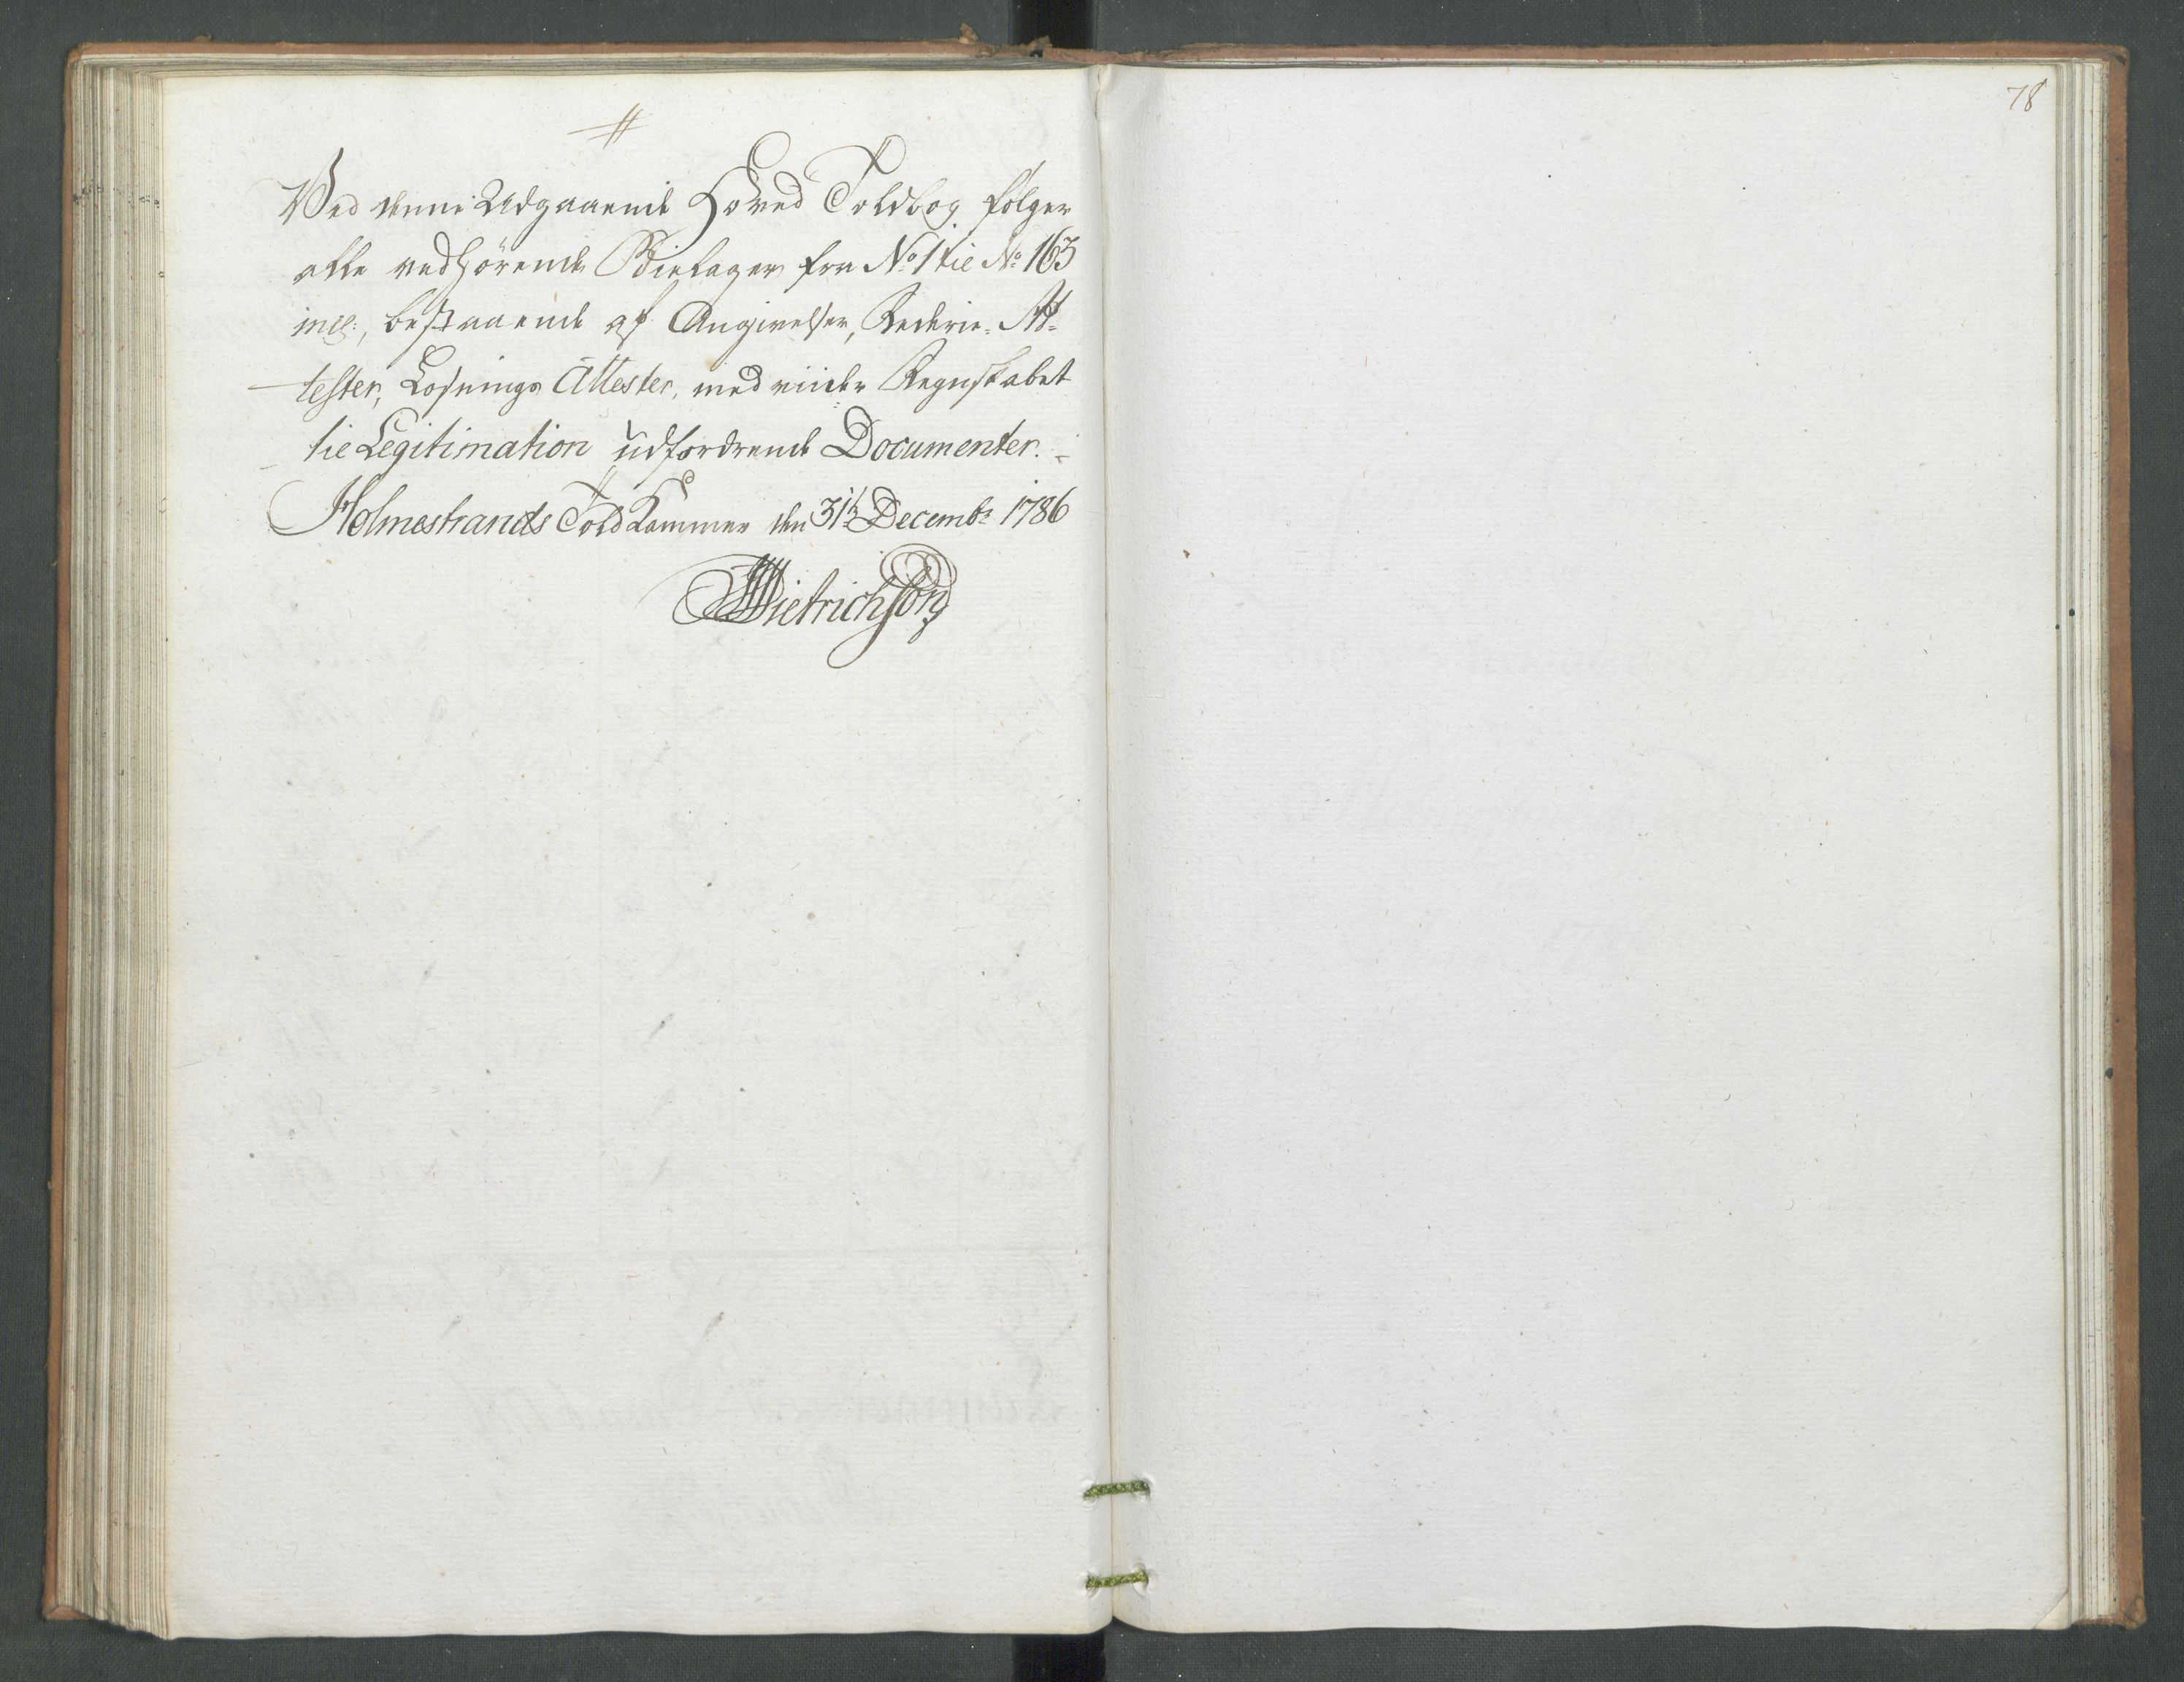 78
Ved denne Udgaaende Hoved Toldbog følger
alle vedhørende Bielager fra No 1 til No 163
incl:, bestaaende af Angivelser, Rederie-At-
tester, Losnings Attester, med viidere Regnskabet
til Legitimation udfordrende Documenter.
Holmestrands Told Kammer den 31te Decembr 1786
Dietrichson